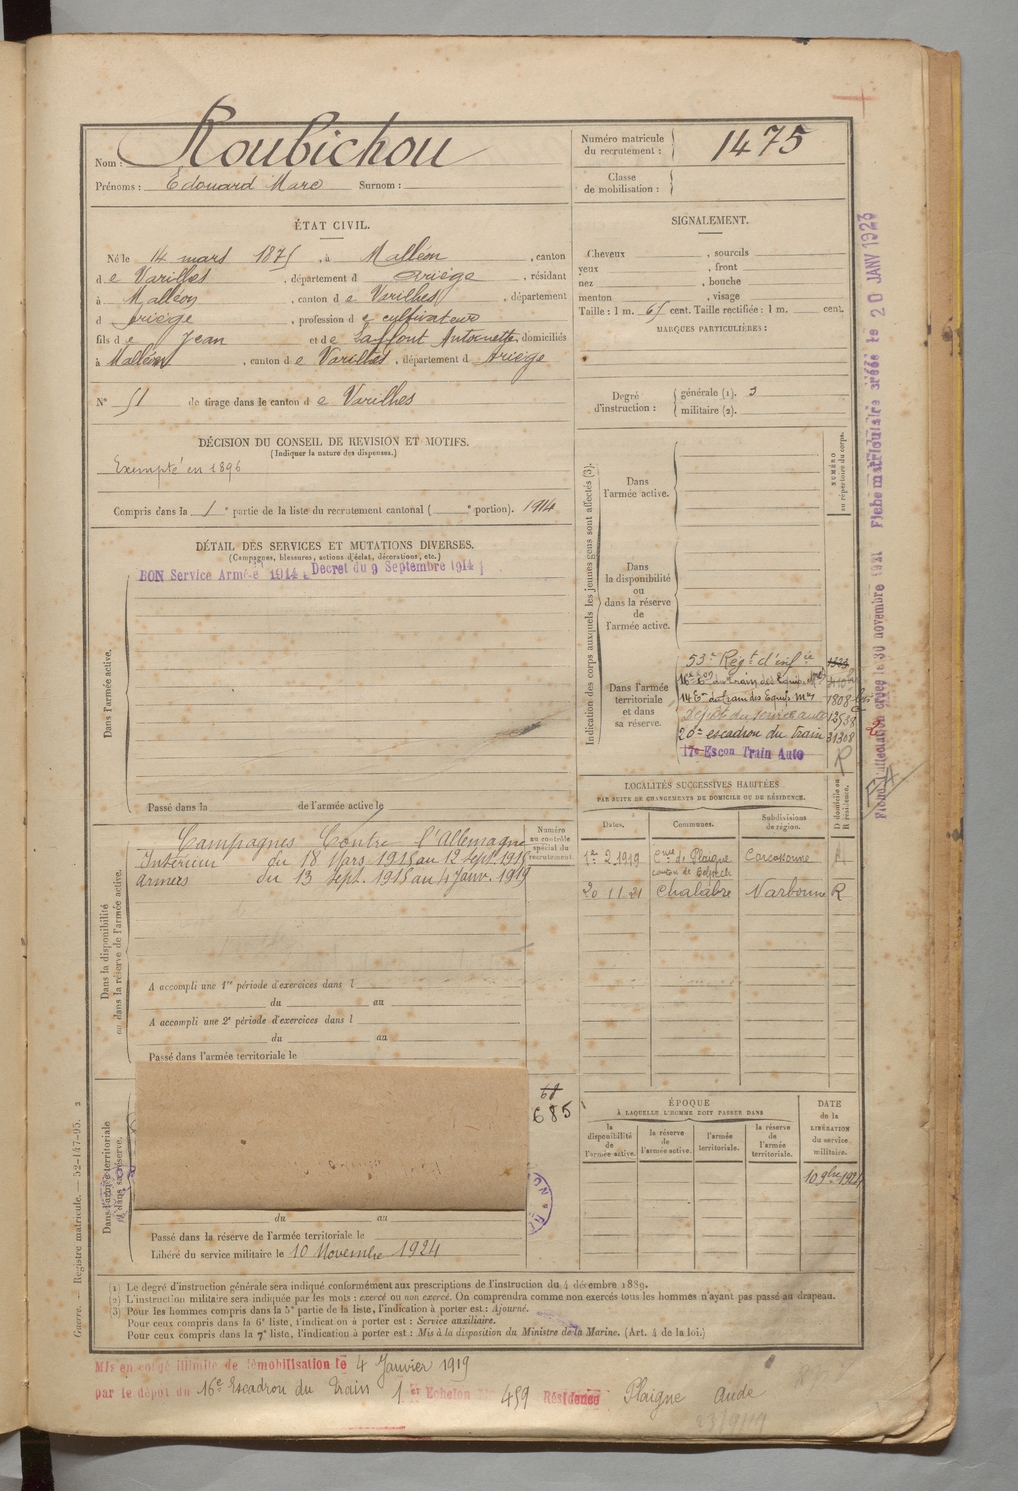 Nom : Roubichou
Prénoms : Edouard Marc Surnom :
Numéro matricule du recrutement : 1475
Classe de mobilisation :
ÉTAT CIVIL.
Né le 14 mars 1875, à Malléon, canton
d e Varilhes, département d Ariège, résidant
à Malléon, canton d e Varilhes, département
d Ariège, profession d e cultivateur
fils d e Jean et d e Laffont Antoinette, domiciliés
à Malléon, canton d e Varilhes, département d Ariège
N° 51 de tirage dans le canton d e Varilhes
DÉCISION DU CONSEIL DE REVISION ET MOTIFS.
(Indiquer la nature des dispenses.)
Exempté en 1896
Compris dans la 1 e partie de la liste du recrutement cantonal ( e portion). 1914
SIGNALEMENT.
Cheveux , sourcils
yeux , front
nez , bouche
menton , visage
Taille : 1 m. 65 cent. Taille rectifiée : 1 m. cent.
MARQUES PARTICULIÈRES :
Degré d'instruction : générale (1). 3
militaire (2).
DÉTAIL DES SERVICES ET MUTATIONS DIVERSES.
(Campagnes, blessures, actions d'éclat, décorations, etc.)
BON Service Armée 1914 Decret du 9 Septembre 1914
Dans l'armée active.
Passé dans la de l'armée active le
Indication des corps auxquels les jeunes gens sont affectés (3).
NUMÉRO au répertoire du corps.
Dans l'armée active.
Dans la disponibilité ou dans la réserve de l'armée active.
Dans l'armée territoriale et dans sa réserve.
53e Régt d'infie 1323
16e Eon du train des Equip. Mres
14 Eon du train des Equip. Mres 1808 bis
Dépôt du service auto 12538
20e escadron du train 31308
17e Escon Train Auto R
Fiche matriculaire créée le 20 JANV 1923
Fiche d'affectation créée le 30 novembre 1921
Dans la disponibilité ou dans la réserve de l'armée active.
Numéro au contrôle spécial du recrutement.
Campagnes Contre l'Allemagne
Intérieur du 18 Mars 1915 au 12 Sept. 1915
Armées du 13 Sept. 1915 au 4 Janv. 1919
A accompli une 1re période d'exercices dans l
du au
A accompli une 2e période d'exercices dans l
du au
Passé dans l'armée territoriale le
LOCALITÉS SUCCESSIVES HABITÉES
PAR SUITE DE CHANGEMENTS DE DOMICILE OU DE RÉSIDENCE.
Dates. Communes. Subdivisions de région. D domicile ou R résidence.
1er 2 1919 Cne de Plaigne canton de Belpech Carcassonne R
20 11 21 Chalabre Narbonne R
Dans l'armée territoriale et dans sa réserve.
685
du au
Passé dans la réserve de l'armée territoriale le
Libéré du service militaire le 10 Novembre 1924
ÉPOQUE
À LAQUELLE L'HOMME DOIT PASSER DANS
la disponibilité de l'armée active. la réserve de l'armée active. l'armée territoriale. la réserve de l'armée territoriale.
DATE de la LIBÉRATION du service militaire.
10 9bre 1924
(1) Le degré d'instruction générale sera indiqué conformément aux prescriptions de l'instruction du 4 décembre 1889.
(2) L'instruction militaire sera indiquée par les mots : exercé ou non exercé. On comprendra comme non exercés tous les hommes n'ayant pas passé au drapeau.
(3) Pour les hommes compris dans la 5e partie de la liste, l'indication à porter est : Ajourné.
Pour ceux compris dans la 6e liste, l'indication à porter est : Service auxiliaire.
Pour ceux compris dans la 7e liste, l'indication à porter est : Mis à la disposition du Ministre de la Marine. (Art. 4 de la loi.)
Guerre. — Registre matricule. — 52-147-95. 2
Mis en congé illimité de démobilisation le 4 Janvier 1919
par le dépôt du 16e Escadron du Train 1 er Echelon 459 Résidence Plaigne Aude
23/9/19